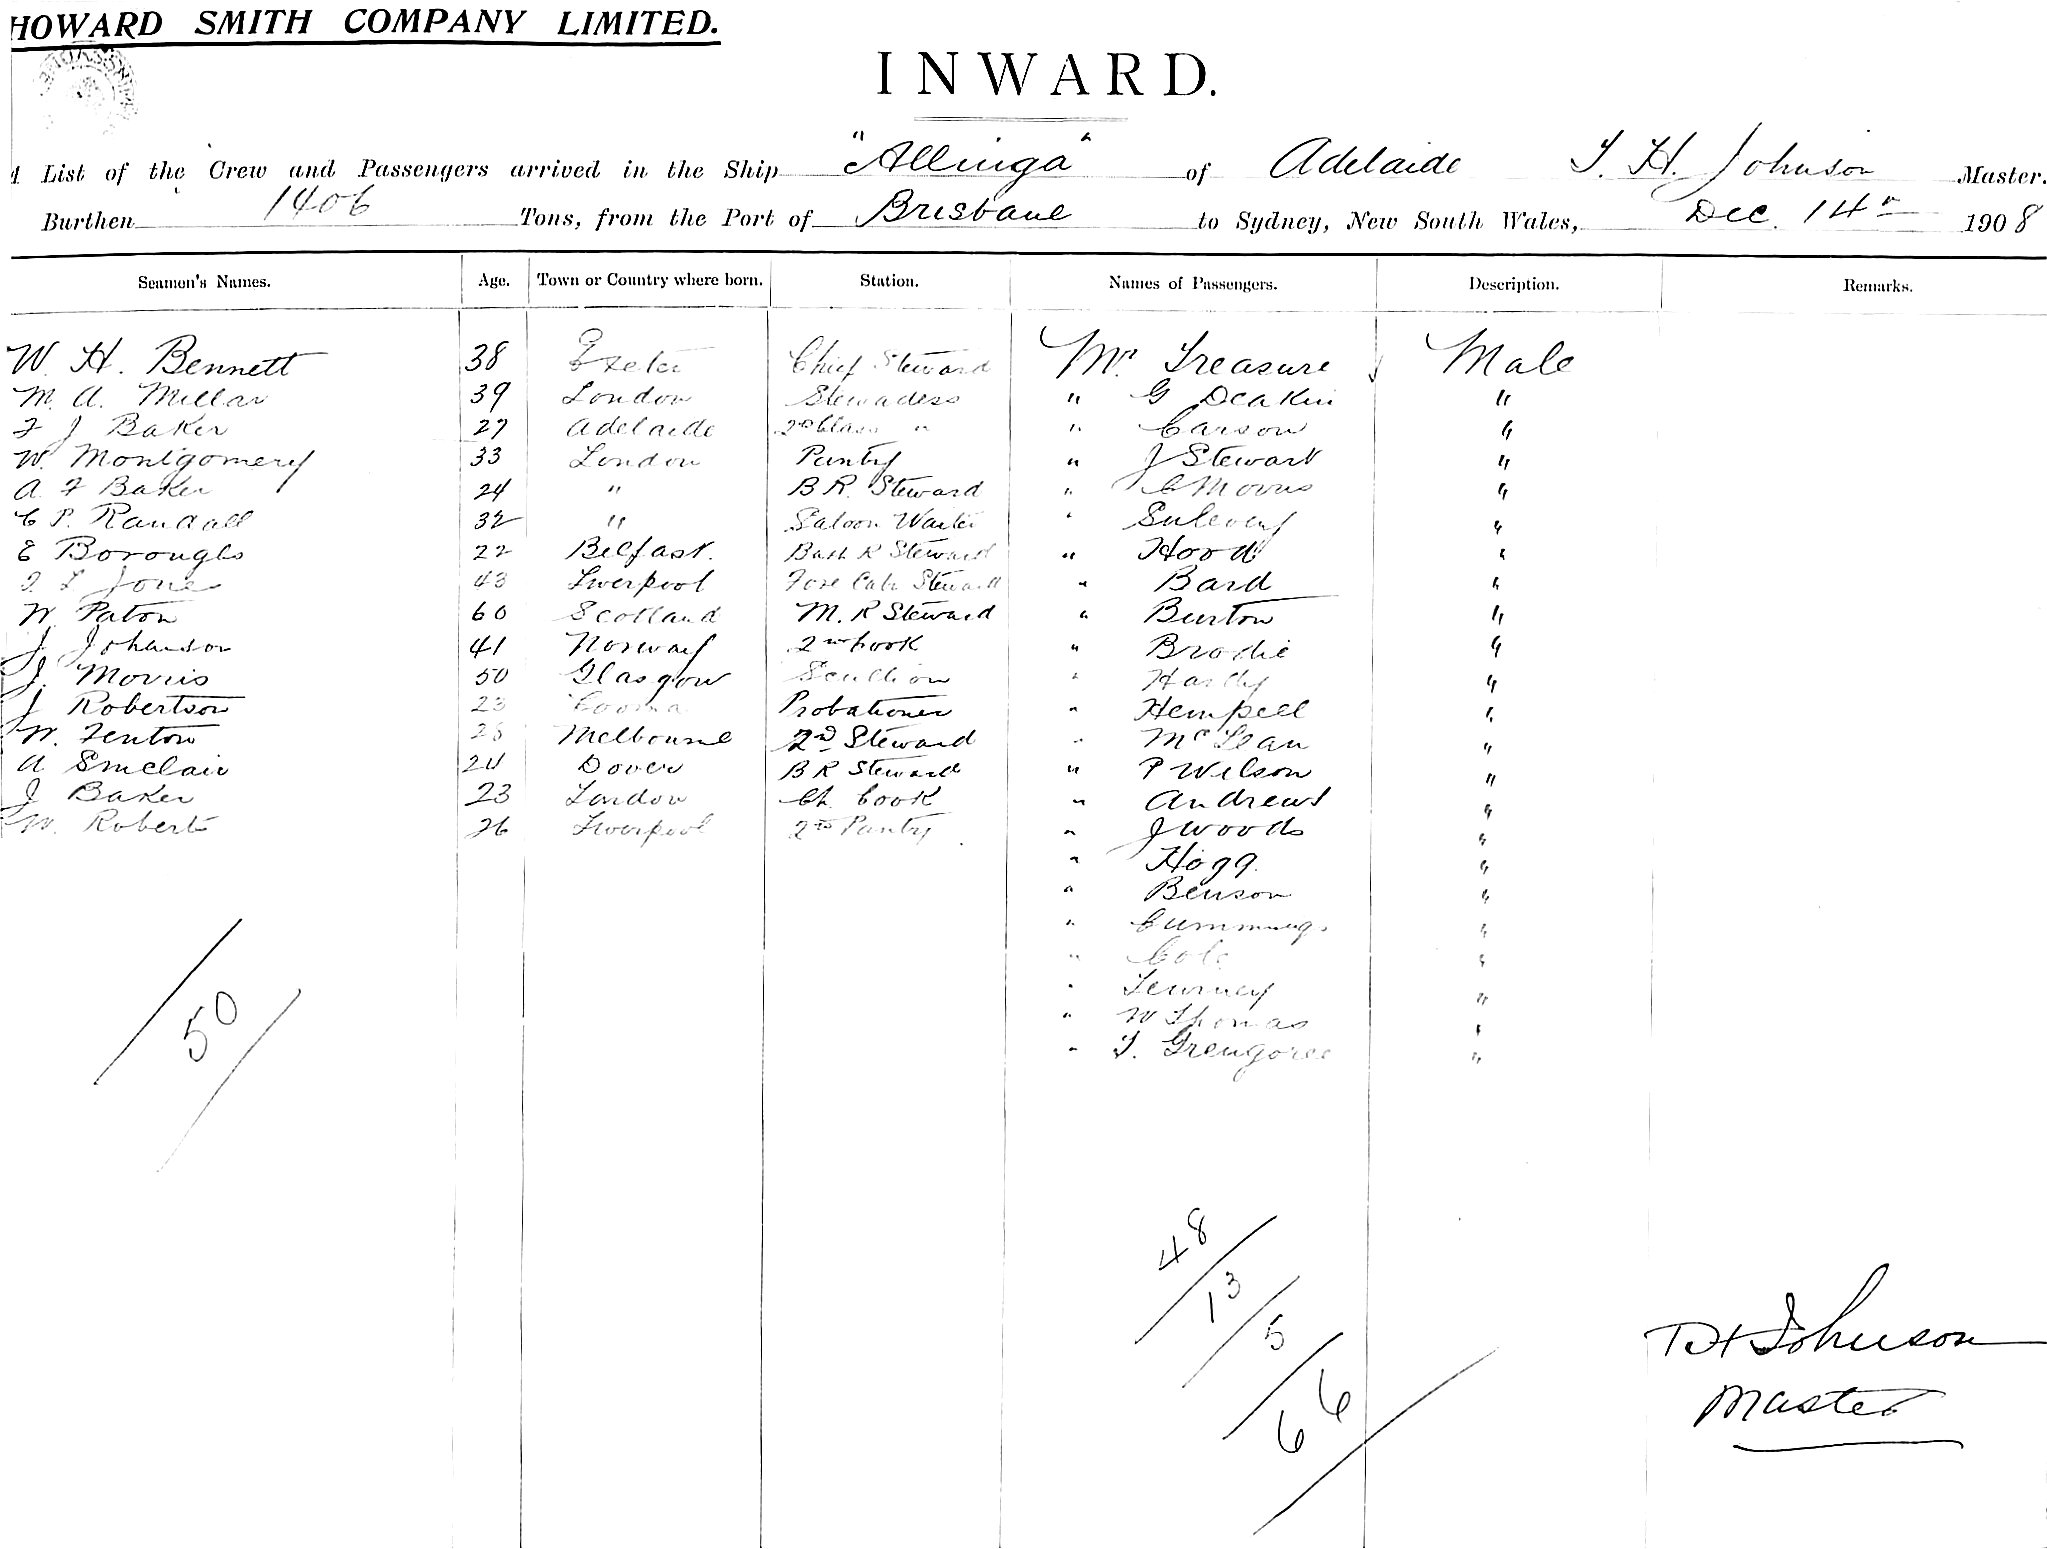 HOWARD SMITH COMPANY LIMITED.
INWARD.
List of the Crew and Passengers arrived in the Ship "Allinga" of Adelaide T. H. Johnson Master.
Burthen 1406 Tons, from the Port of Brisbane to Sydney, New South Wales, Dec. 14th 1908
Seamen's Names. Age. Town or Country where born. Station. Names of Passengers. Description. Remarks.
W. H. Bennett 38 Exeter Chief Steward Mr Treasure Male
M. A. Millar 39 London Stewadess " G Deakin "
F J Baker 27 Adelaide 2nd Class " " Carson "
W. Montgomery 33 London Pantry " J Stewart "
A. F Baker 24 " B R. Steward " C Morris "
C P. Randall 32 " Saloon Waiter " "
E Boroughs 22 Belfast. Bath R Steward " Hood "
43 Liverpool Fore Cab Steward " Bard "
W. Paton 60 Scotland M. R Steward " Burton "
J Johanson 41 Norway 2nd Cook " Brodie "
J. Morris 50 Glasgow Scullion " Hardy "
J Robertson 23 Cooma Probationer " Hempell "
W. Fenton Melbourne 2nd Steward " McLean "
A Sinclair 24 Dover B R Steward " P Wilson "
J Baker 23 London Ch. Cook " Andrews "
W. Roberts 26 Liverpool 2nd Pantry " J Woods "
" Hogg. "
" Benson "
" Cummings "
" Cole "
" "
" W Thomas "
" T. "
50
48
13
5
66
T H Johnson
Master